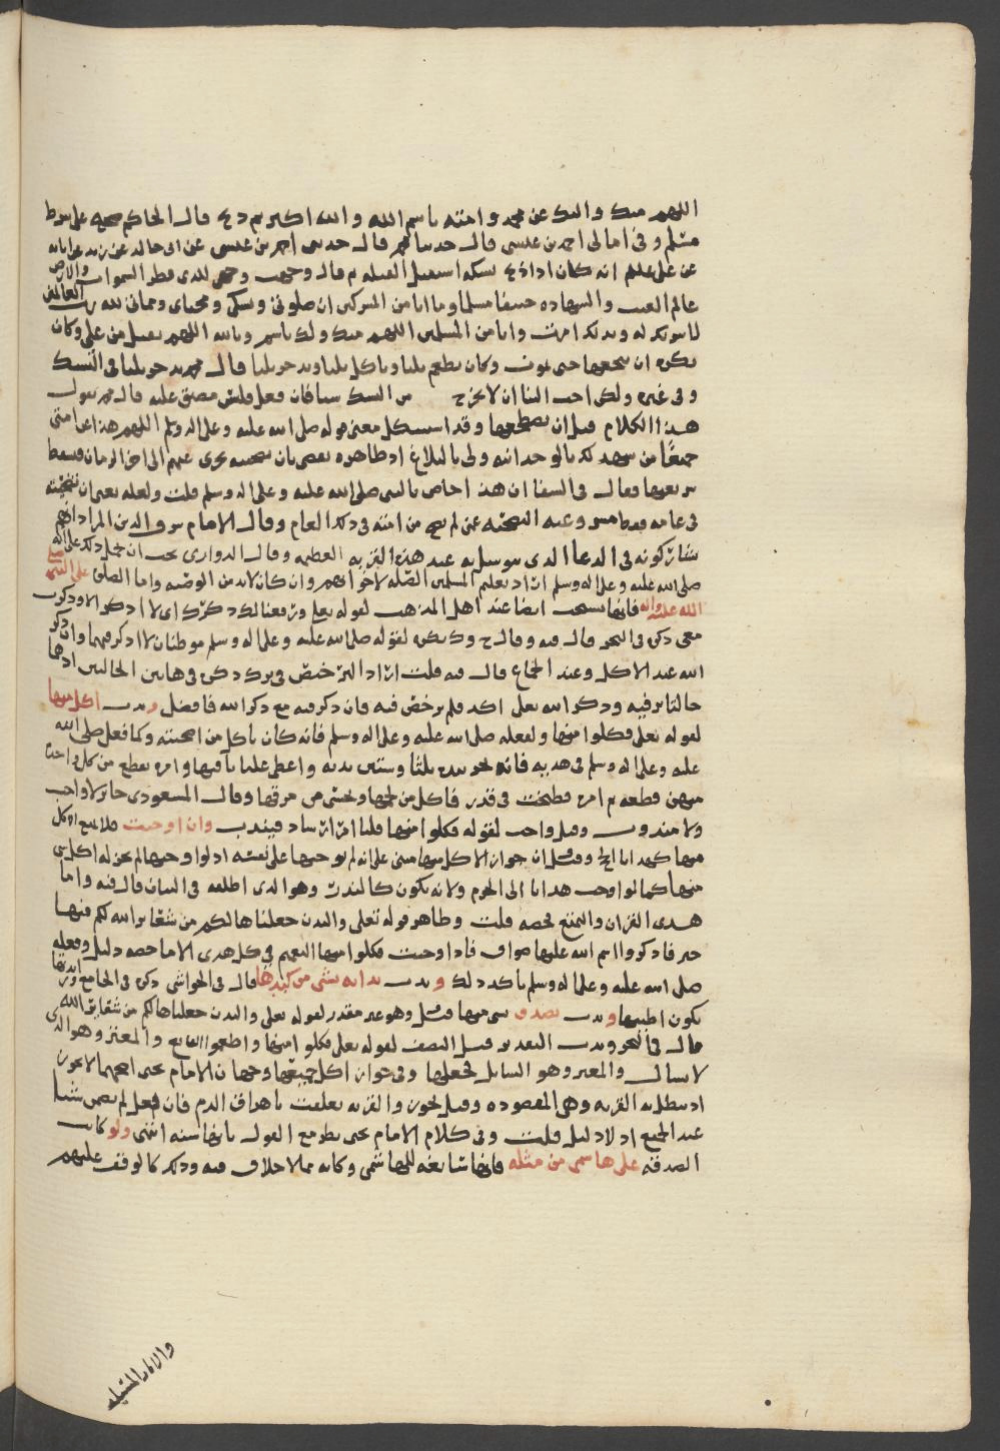 اللهم منك واليك عن محمد وامته باسم الله والله اكبر ثم ذبح قال الحاكم صحيح على شرط
مسلم وفي امالي احمد بن عيسى قال حدثنا محمد قال حدثني احمد بن عيسى عن ابي خالد عن زيد عن ابائه
عن علي عليلم انه كان اذا ذبح نسكه استقبل القبله ثم قال وجهت وجهي للذي فطر السموات والارض
عالم الغيب والشهاده حنيفا مسلما وما انا من المشركين ان صلوتي ونسكي ومحياي ومماتي لله رب العالمين
لا شريك له وبذلك امرت وانا من المسلمين اللهم منك ولك باسم وبالله اللهم تقبل من علي وكان
يكره ان ينخعها حتى تموت وكان يطعم ثلثا وياكل ثلثا ويدخر ثلثا قال محمد يدخر ثلثا في النسك
وفي غيره ولكن احب الينا ان لا يخرج من النسك شيا فان فعل فليس مضيق عليه قال محمد يقول
هذا الكلام قبل ان يضطجعها وقد استشكل معنى قوله صلى الله عليه وعلى اله وسلم اللهم هذا عن امتي
جميعًا من شهد لك بالوحدانيه ولي بالبلاغ اذ ظاهره يقضي بان تضحيته تجزي عنهم الى اخر الزمان فسقط
شرعيتها فقال في الشفا ان هذا خاص بالنبي صلى الله عليه وعلى اله وسلم قلت ولعله يعني ان تضحيته
في عامه فقط وعنه التضحيه عمن لم يضح من امته في ذلك العام وقال الامام شرف الدين المراد انهم
يشاركونه في الدعا الذي يتوسل به عند هذه القربه العظيمه وقال الدواري يجب ان يحمل ذلك على انه
صلى الله عليه وعلى اله وسلم اراد تعليم المسلمين الصله لاخوانهم وان كان لا بد من الوصيه واما الصلوة على النبي صلى
الله عليه واله فانها تستحب ايضا عند اهل المذهب لقوله تعلى ورفعنا لك ذكرك اي لا اذكر الا وذكرت
معي ذكره في البحر قال فيه وقال ح و ك يكره لقوله صلى الله عليه وعلى اله وسلم موطنان لا اذكر فيهما وان ذكر
الله عند الاكل وعند الجماع قال فيه قلت اراد الترخيص في ترك ذكره في هاتين الحالتين اذ هما
حالتا ترفيه وذكر الله تعلى اكد فلم يرخص فيه فان ذكر فيه مع ذكر الله فافضل وندب اكل منها
لقوله تعلى فكلوا منها ولفعله صلى الله عليه وعلى اله وسلم فانه كان ياكل من اضحيته وكما فعل صلى الله
عليه وعلى اله وسلم في هديه فانه نحر بيده ثلثا وستين بدنه واعطى عليا باقيها وامره بقطع من كل واحدة
منهن قطعه ثم امره فطبخت في قدر فاكل من لحمها وحسى من مرقها وقال المسعودي جائز لا واجب
ولا مندوب وقيل واجب لقوله فكلوا منها قلنا امر ارشاد فيندب وان اوجبت فلا يمنع الاكل
منها كهدايا الحج وقيل ان جواز الاكل منها مبني على انه لم يوجبها على نفسه اذ لو اوجبها لم يجز له اكل شي
منها كما لو اوجب هدايا الى الحرم ولانه يكون كالنذر وهو الذي اطلقه في البيان قال فيه واما
هدي القران والتمتع فخصه قلت وظاهر قوله تعلى والبدن جعلناها لكم من شعائر الله لكم فيها
خير فاذكروا اسم الله عليها صواف فاذا وجبت فكلوا منها التعميم في كل هدي الا ما خصه دليل وفعله
صلى الله عليه وعلى اله وسلم ياكد ذلك وندب بداته بشي من كبدها قال في الحواشي ذكره في الجامع
يكون اطيبها وندب تصدق بشي منها قيل وهو غير مقدر لقوله تعلى والبدن جعلناها لكم من شعائر الله
قال في البحر وندب التقدير قيل النصف لقوله تعلى فكلوا منها واطعموا القانع والمعتر وهو الذي
لا يسال والمعتر وهو السائل فجعلها وفي جواز اكل جميعها وجهان الامام يحيى اصحهما لا يجوز
اذ تبطل به القربه وهي المقصوده وقيل يجوز والقربه تعلقت باهراق الدم فان فعل لم يضمن شيئا
عند الجميع اذ لا دليل قلت وفي كلام الامام يحيى نظر مع القول بانها سنه انتهى ولو كانت
الصدقه على هاشمي من مثله فانها شائعه للهاشمي وكانه مما لا خلاف فيه وذلك كالوقف عليهم
والاثار المقبله